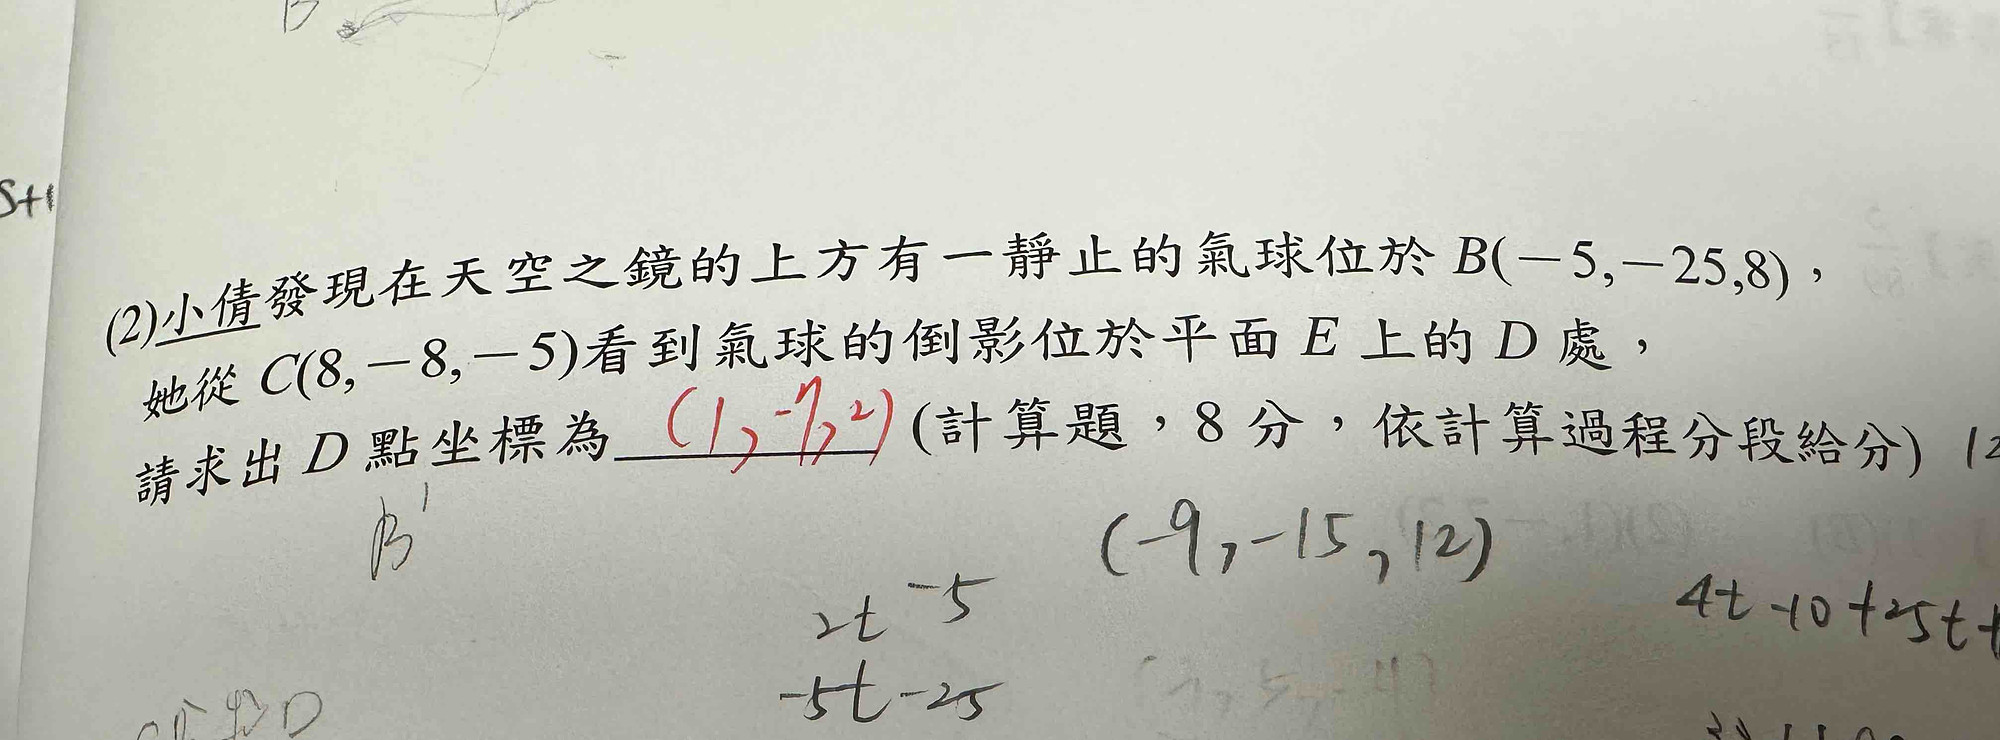 B
S+1
(2)小倩發現在天空之鏡的上方有一靜止的氣球位於 B(−5,−25,8),
她從 C(8,−8,−5)看到氣球的倒影位於平面 E 上的 D 處,
請求出 D 點坐標為 (1,-7,2) (計算題,8 分,依計算過程分段給分) 12
B'
(-9,-15,12)
2t-5
4t-10+25t+
-5t-25
D